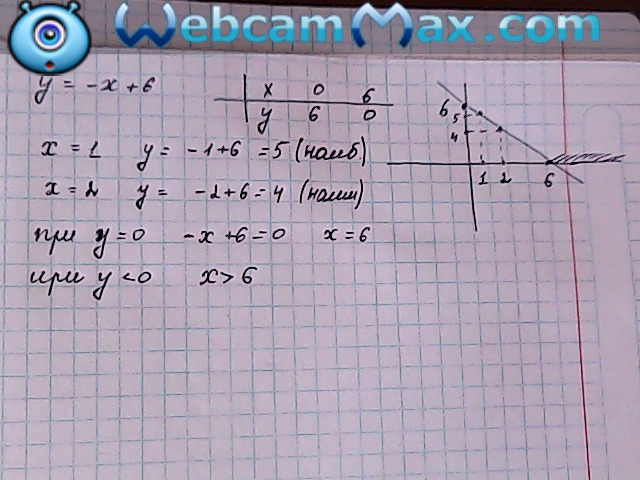 WebcamMax.com
y = -x + 6
x 0 6
y 6 0
x = 1 y = -1+6 = 5 (наиб)
x = 2 y = -2+6 = 4 (наим)
при y = 0 -x + 6 = 0 x = 6
при y < 0 x > 6
6
5
4
1 2 6